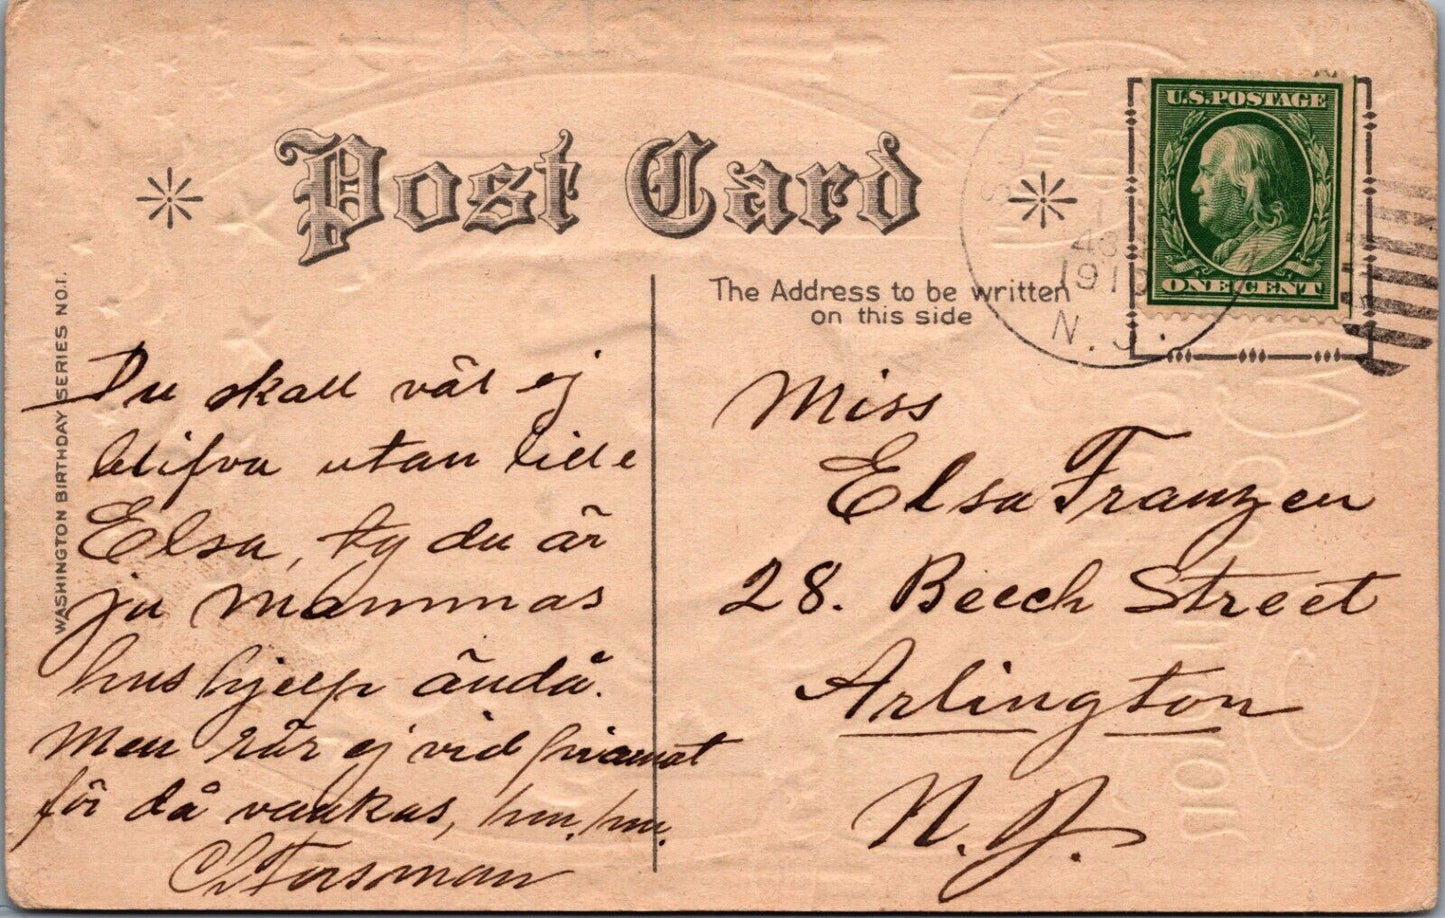 Post Card
U.S. POSTAGE
ONE CENT
1910
N. J.
The Address to be written
on this side
WASHINGTON BIRTHDAY SERIES NO. 1.
Du skall väl ej
blifva utan lille
Elsa, ty du är
ju mammas
hus hjelp ändå.
Men rör ej vid pianat
för då vankas, hm, hm.
Miss
Elsa Franzen
28. Beech Street
Arlington
N. J.